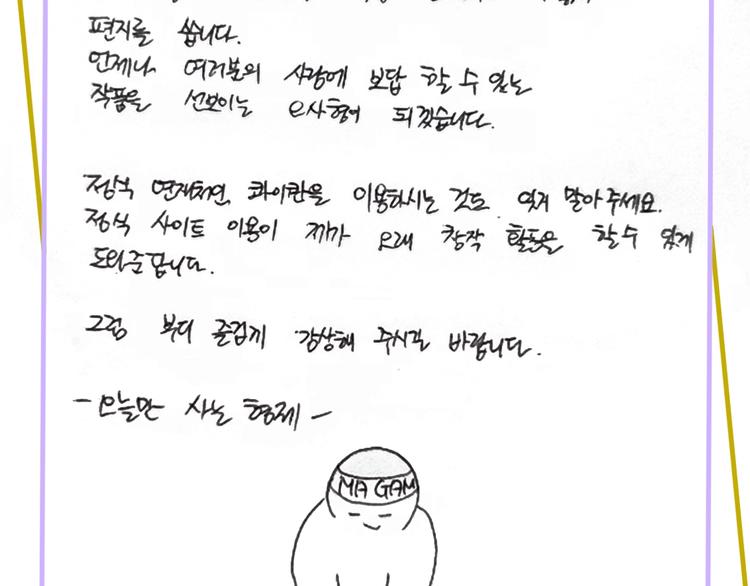 편지를 씁니다.
언제나 여러분의 사랑에 보답 할 수 있는
작품을 선보이는 e사형이 되겠습니다.
정식 연재처인, 콰이칸을 이용하시는 것도 잊지 말아주세요.
정식 사이트 이용이 저가 오래 창작 활동을 할 수 있게
도와준답니다.
그럼 부디 즐겁게 감상해 주시길 바랍니다.
- 오늘만 사는 형제 -
MA GAM